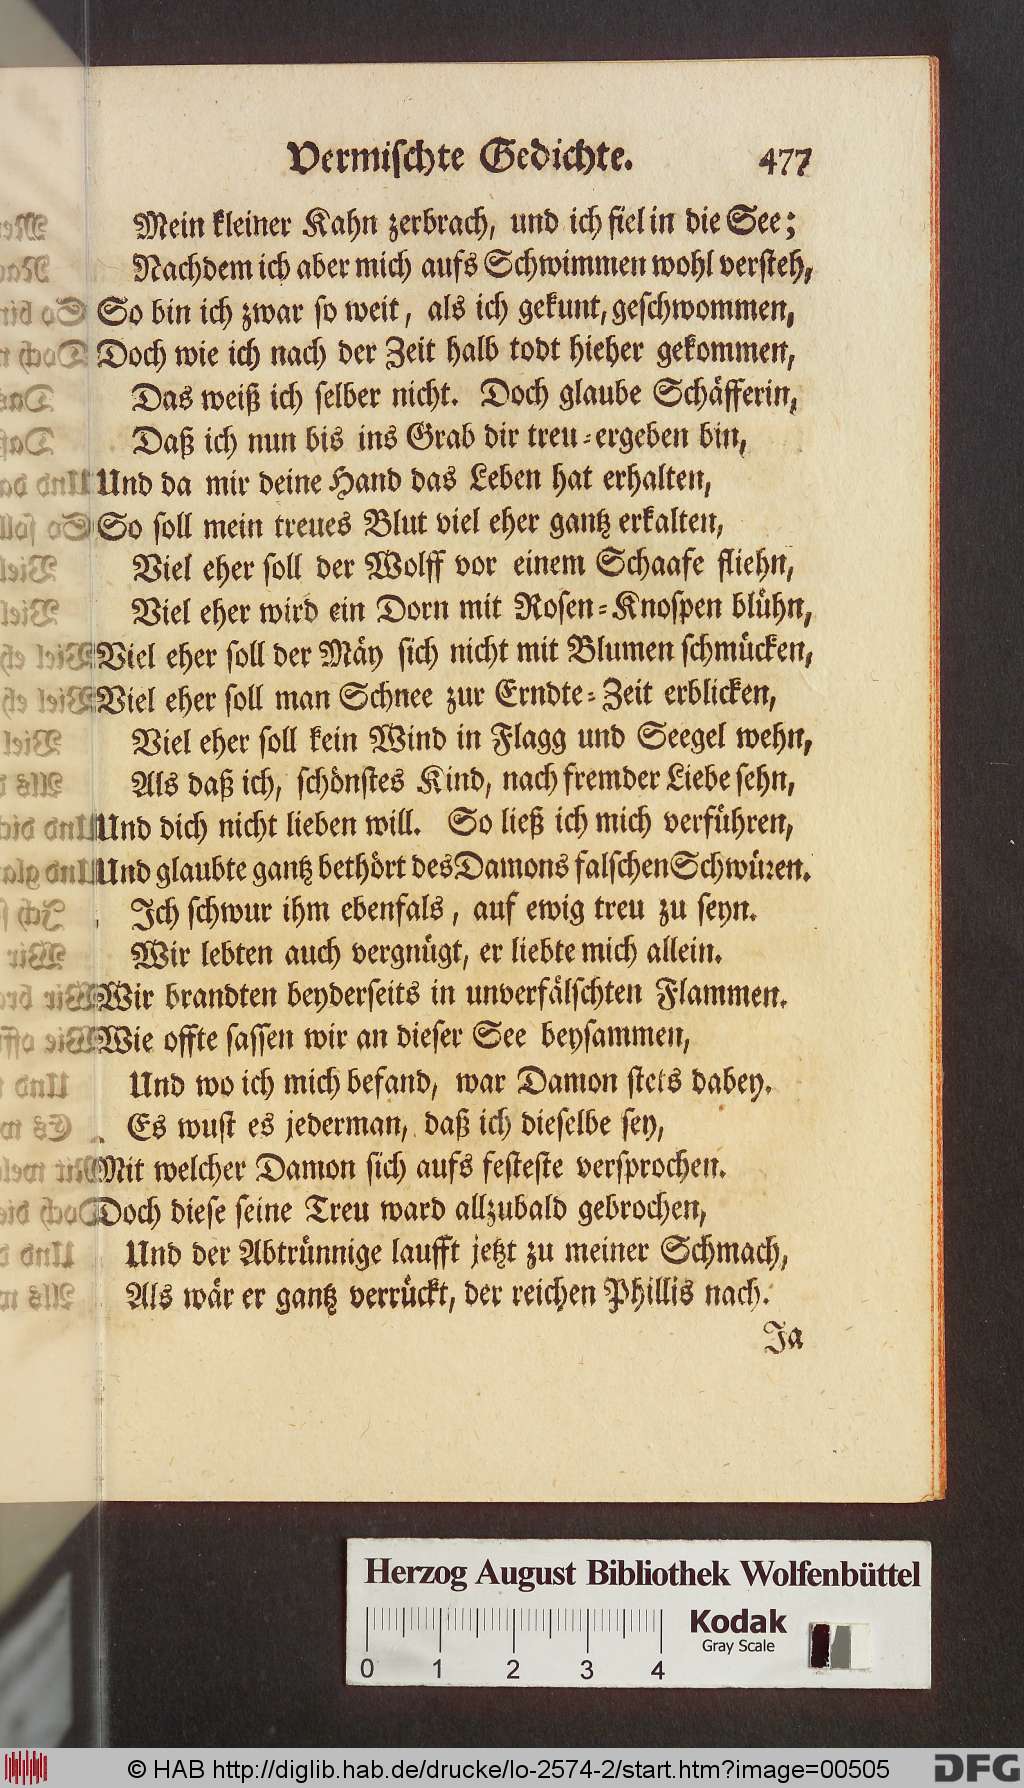 Vermischte Gedichte. 477
Mein kleiner Kahn zerbrach, und ich fiel in die See;
Nachdem ich aber mich aufs Schwimmen wohl versteh,
So bin ich zwar so weit, als ich gekunt, geschwommen,
Doch wie ich nach der Zeit halb todt hieher gekommen,
Das weiß ich selber nicht. Doch glaube Schäfferin,
Daß ich nun bis ins Grab dir treu-ergeben bin,
Und da mir deine Hand das Leben hat erhalten,
So soll mein treues Blut viel eher gantz erkalten,
Viel eher soll der Wolff vor einem Schaafe fliehn,
Viel eher wird ein Dorn mit Rosen-Knospen blühn,
Viel eher soll der Mäy sich nicht mit Blumen schmücken,
Viel eher soll man Schnee zur Erndte-Zeit erblicken,
Viel eher soll kein Wind in Flagg und Seegel wehn,
Als daß ich, schönstes Kind, nach fremder Liebe sehn,
Und dich nicht lieben will. So ließ ich mich verführen,
Und glaubte gantz bethört des Damons falschen Schwüren.
Ich schwur ihm ebenfals, auf ewig treu zu seyn.
Wir lebten auch vergnügt, er liebte mich allein.
Wir brandten beyderseits in unverfälschten Flammen.
Wie offte sassen wir an dieser See beysammen,
Und wo ich mich befand, war Damon stets dabey.
Es wust es jederman, daß ich dieselbe sey,
Mit welcher Damon sich aufs festeste versprochen.
Doch diese seine Treu ward allzubald gebrochen,
Und der Abtrünnige laufft jetzt zu meiner Schmach,
Als wär er gantz verrückt, der reichen Phillis nach.
Ja
Herzog August Bibliothek Wolfenbüttel
Kodak
Gray Scale
0 1 2 3 4
© HAB http://diglib.hab.de/drucke/lo-2574-2/start.htm?image=00505
DFG